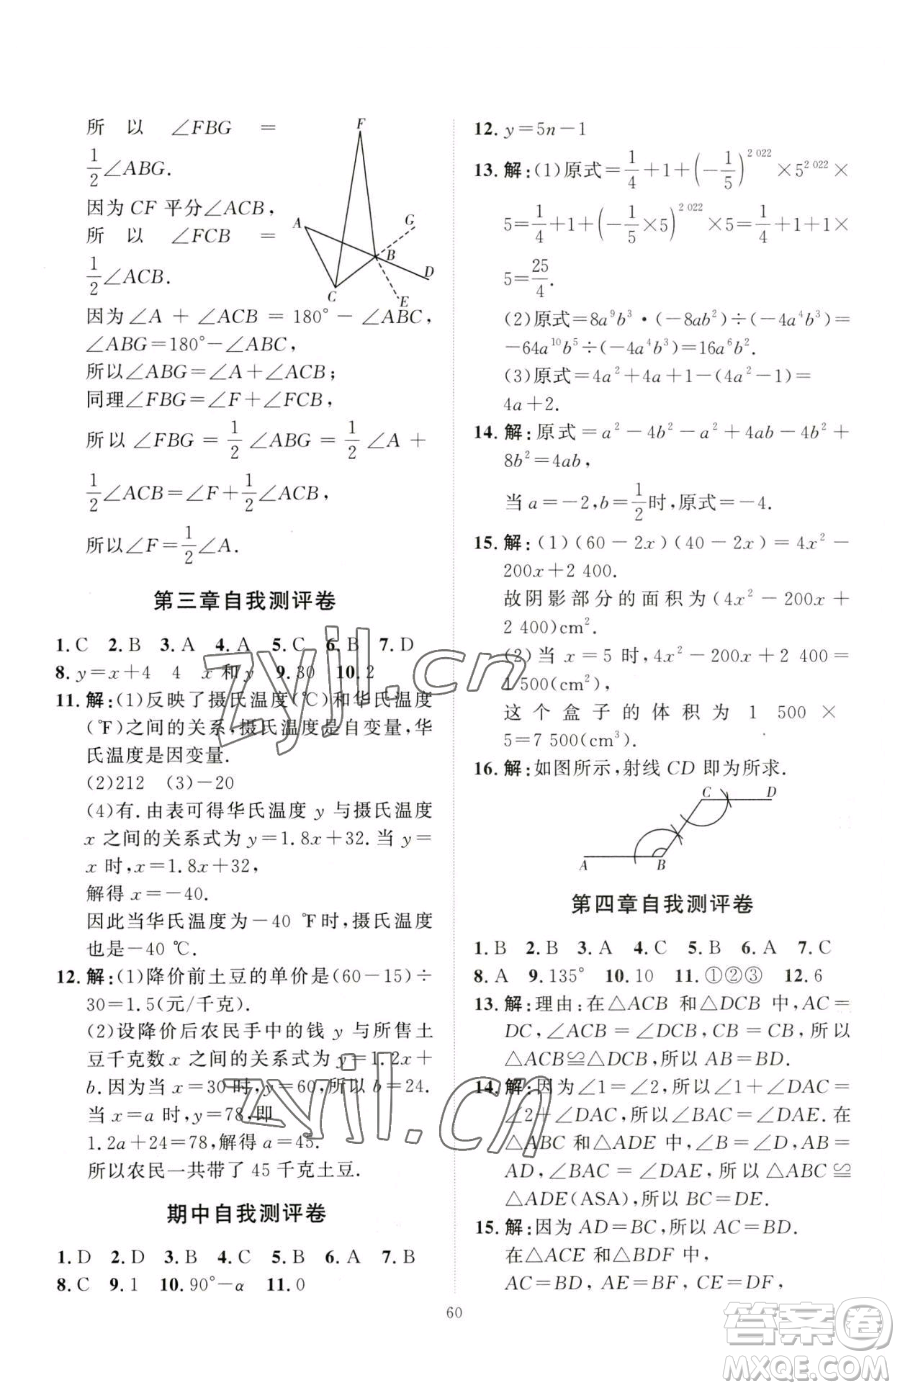 所以∠FBG=
1/2∠ABG.
因为 CF 平分∠ACB,
所以∠FCB=
1/2∠ACB.
因为∠A+∠ACB=180°-∠ABC,
∠ABG=180°-∠ABC,
所以∠ABG=∠A+∠ACB;
同理∠FBG=∠F+∠FCB,
所以∠FBG=1/2∠ABG=1/2∠A+
1/2∠ACB=∠F+1/2∠ACB,
所以∠F=1/2∠A.
F
A
G
B
D
C
E
第三章自我测评卷
1.C 2.B 3.A 4.A 5.C 6.B 7.D
8.y=x+4 4 x 和 y 9.30 10.2
11.解:(1)反映了摄氏温度(℃)和华氏温度
(℉)之间的关系,摄氏温度是自变量,华
氏温度是因变量.
(2)212 (3)-20
(4)有.由表可得华氏温度 y 与摄氏温度
x 之间的关系式为 y=1.8x+32.当 y=
x 时,x=1.8x+32,
解得 x=-40.
因此当华氏温度为-40 ℉时,摄氏温度
也是-40 ℃.
12.解:(1)降价前土豆的单价是(60-15)÷
30=1.5(元/千克).
(2)设降价后农民手中的钱 y 与所售土
豆千克数 x 之间的关系式为 y=1.2x+
b.因为 x=30 时,y=60,所以 b=24.
当 x=a 时,y=78,即
1.2a+24=78,解得 a=45.
所以农民一共带了 45 千克土豆.
期中自我测评卷
1.D 2.D 3.B 4.C 5.B 6.A 7.B
8.C 9.1 10.90°-α 11.0
12.y=5n-1
13.解:(1)原式=1/4+1+(-1/5)^2 022×5^2 022×
5=1/4+1+(-1/5×5)^2 022×5=1/4+1+1×
5=25/4.
(2)原式=8a⁹b³·(-8ab²)÷(-4a⁴b³)=
-64a¹⁰b⁵÷(-4a⁴b³)=16a⁶b².
(3)原式=4a²+4a+1-(4a²-1)=
4a+2.
14.解:原式=a²-4b²-a²+4ab-4b²+
8b²=4ab,
当 a=-2,b=1/2时,原式=-4.
15.解:(1)(60-2x)(40-2x)=4x²-
200x+2 400.
故阴影部分的面积为(4x²-200x+
2 400)cm².
(2)当 x=5 时,4x²-200x+2 400=
1 500(cm²),
这个盒子的体积为 1 500×
5=7 500(cm³).
16.解:如图所示,射线 CD 即为所求.
C
D
A
B
第四章自我测评卷
1.B 2.B 3.A 4.C 5.B 6.A 7.C
8.A 9.135° 10.10 11.①②③ 12.6
13.解:理由:在△ACB 和△DCB 中,AC=
DC,∠ACB=∠DCB,CB=CB,所以
△ACB≌△DCB,所以 AB=BD.
14.解:因为∠1=∠2,所以∠1+∠DAC=
∠2+∠DAC,所以∠BAC=∠DAE.在
△ABC 和△ADE 中,∠B=∠D,AB=
AD,∠BAC=∠DAE,所以△ABC≌
△ADE(ASA),所以 BC=DE.
15.解:因为 AD=BC,所以 AC=BD.
在△ACE 和△BDF 中,
AC=BD,AE=BF,CE=DF,
60
zyjl.cn
zyjl.cn
答案圈
MXQE.COM